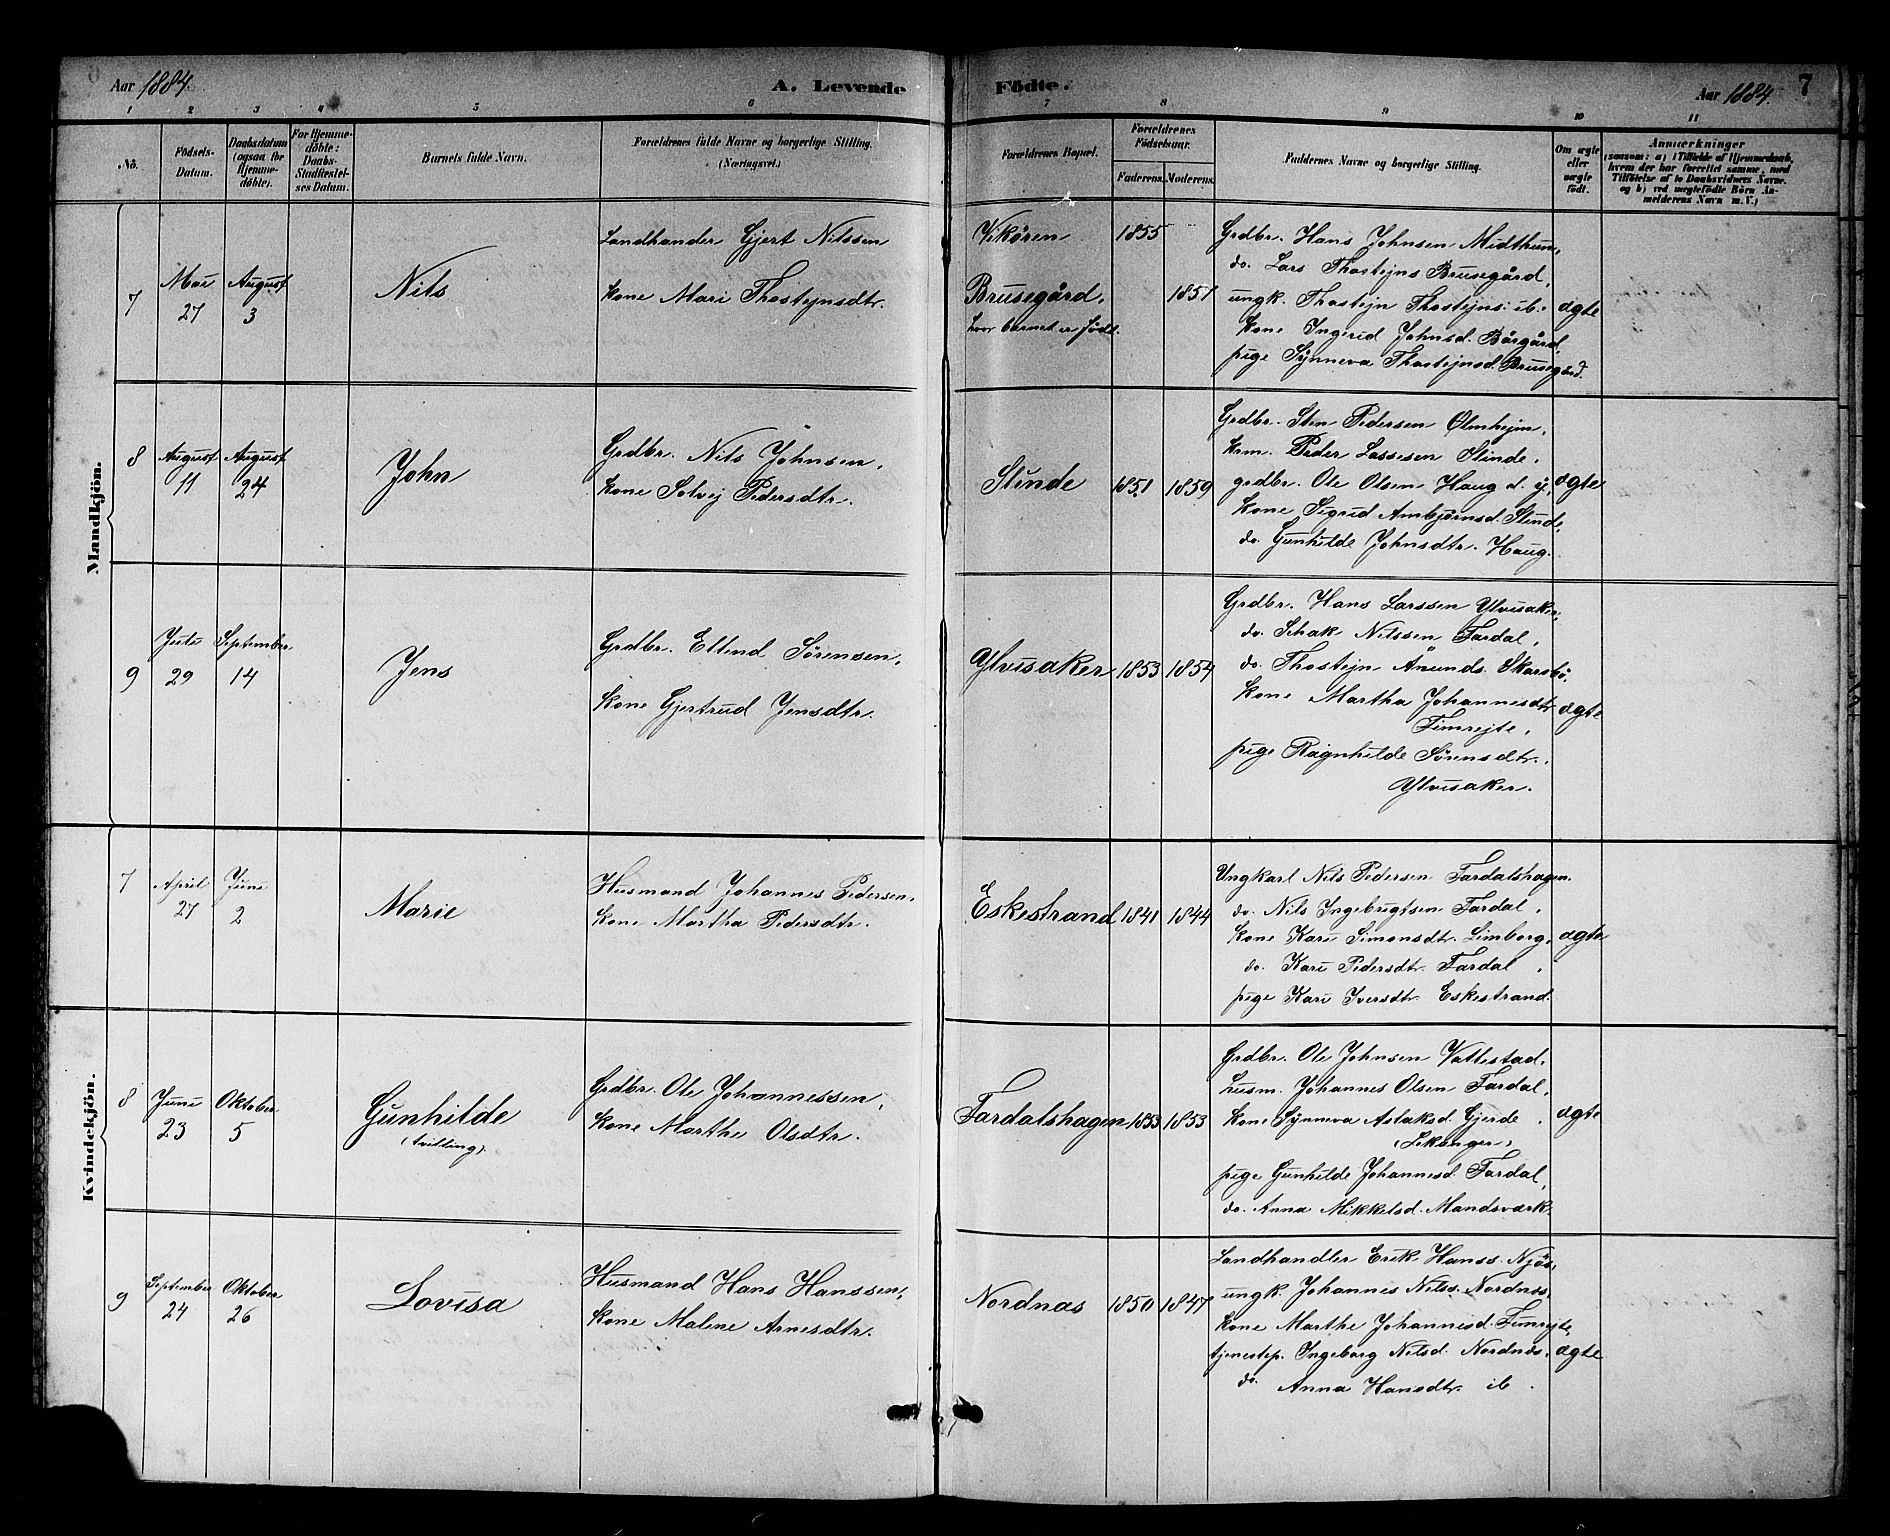 Aar 1884.
A. Levende
Födte.
Aar 1884.
7
1 2 3 4 5 6 7 8 9 10 11
No.
Födsels-
Datum.
Daabsdatum
(ogsaa for
Hjemme-
döbte).
For Hjemme-
döbte:
Daabs-
Stadfæstel-
ses Datum.
Barnets fulde Navn.
Forældrenes fulde Navne og borgerlige Stilling.
(Næringsvei.)
Forældrenes Bopæl.
Forældrenes
Födselsaar.
Faderens.
Moderens.
Faddernes Navne og borgerlige Stilling.
Om ægte
eller
uægte
födt.
Anmærkninger
(saasom: a) i Tilfælde af Hjemmedaab,
hvem der har forrettet samme, med
Tilföielse af to Daabsvidners Navne.
og b) ved uægtefödte Börn An-
melderens Navn m. V.)
Mandkjön.
7
Mai
27
August
3
Nils
Landhander Gjert Nilssen
Kone Mari Thostejnsdtr.
Vikören
Brusegård,
hvor barnet er født.
1855
1851
Grdbr. Hans Johnsen Midthun,
do. Lars Thostejns Brusegård,
ungk. Thostejn Thostejns: ib:
Kone Ingerid Johnsd. Bårgård,
pige Synneva Thostejnsd. Brusegård.
ægte
8
August
11
August
24
John
Grdbr. Nils Johnsen,
Kone Solvej Pedersdtr.
Slinde
1851
1859
Grdbr. Sten Pedersen Ølmhejm,
Krm. Peder Lassesen Slinde,
grdbr. Ole Olsen Haug d. y,
Kone Sigrid Ambjørnsd. Slinde,
do. Gunhilde Johnsdtr. Haug.
ægte
9
Juli
29
September
14
Jens
Grdbr. Ellend Sørensen,
Kone Gjertrud Jensdtr.
Ylvisaker
1853
1854
Grdbr. Hans Larssen Ylvisaker,
do. Schak Nilssen Fardal,
do. Thostejn Ånunds. Skarsbø,
Kone Martha Johannesdtr
Fimrejte,
pige Ragnhilde Sørensdtr.
Ylvisaker.
ægte
Kvindekjön.
7
April
27
Juni
2
Marie
Husmand Johannes Pedersen,
Kone Martha Pedersdtr.
Eskestrand
1841
1844
Ungkarl Nils Pedersen Fardalshagen.
do. Nils Ingebrigtsen Fardal,
Kone Kari Simonsdtr. Limborg,
do. Kari Pedersdtr. Fardal,
pige Kari Iversdtr. Eskestrand.
ægte
8
Juni
23
Oktober
5
Gunhilde
(tvilling).
Grdbr. Ole Johannessen,
Kone Marthe Olsdtr.
Fardalshagen
1853
1853
Grdbr. Ole Johnsen Vallestad,
husm. Johannes Olsen Fardal,
Kone Synneva Aslaksd. Gjerde,
(Lekanger)
pige Gunhilde Johannesd. Fardal,
do. Anna Mikkelsd. Mandsværk.
ægte
9
September
24
Oktober
26
Lovisa
Husmand Hans Hanssen,
Kone Malene Arnesdtr.
Nordnæs
1850
1847
Landhandler Erik Hanss. Njøs,
ungk. Johannes Nilss. Nordnæs,
Kone Marthe Johannesd. Fimrejte,
tjenestep. Ingeborg Nilsd. Nordnæs,
do. Anna Hansdtr. ib.
ægte